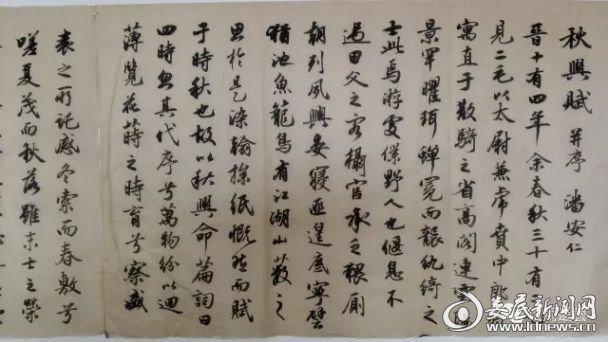 秋興賦 并序 潘安仁
晉十有四年余春秋三十有
見二毛以太尉兼虎賁中郎
寓直于散騎之省高閣連雲
景罕曜珥蟬冕而襲紈綺之
士此焉游處僕野人也偃息不
過田父之客攝官承乏猥廁
朝列夙興晏寢匪遑底寧譬
猶池魚籠鳥有江湖山藪之
思於是染翰操紙慨然而賦
于時秋也故以秋興命篇詞曰
四時忽其代序兮萬物紛以迴
薄覽花蒔之時育兮察盛
衰之所託感冬索而春敷兮
嗟夏茂而秋落雖末士之榮
娄底新闻网
www.ldnews.cn